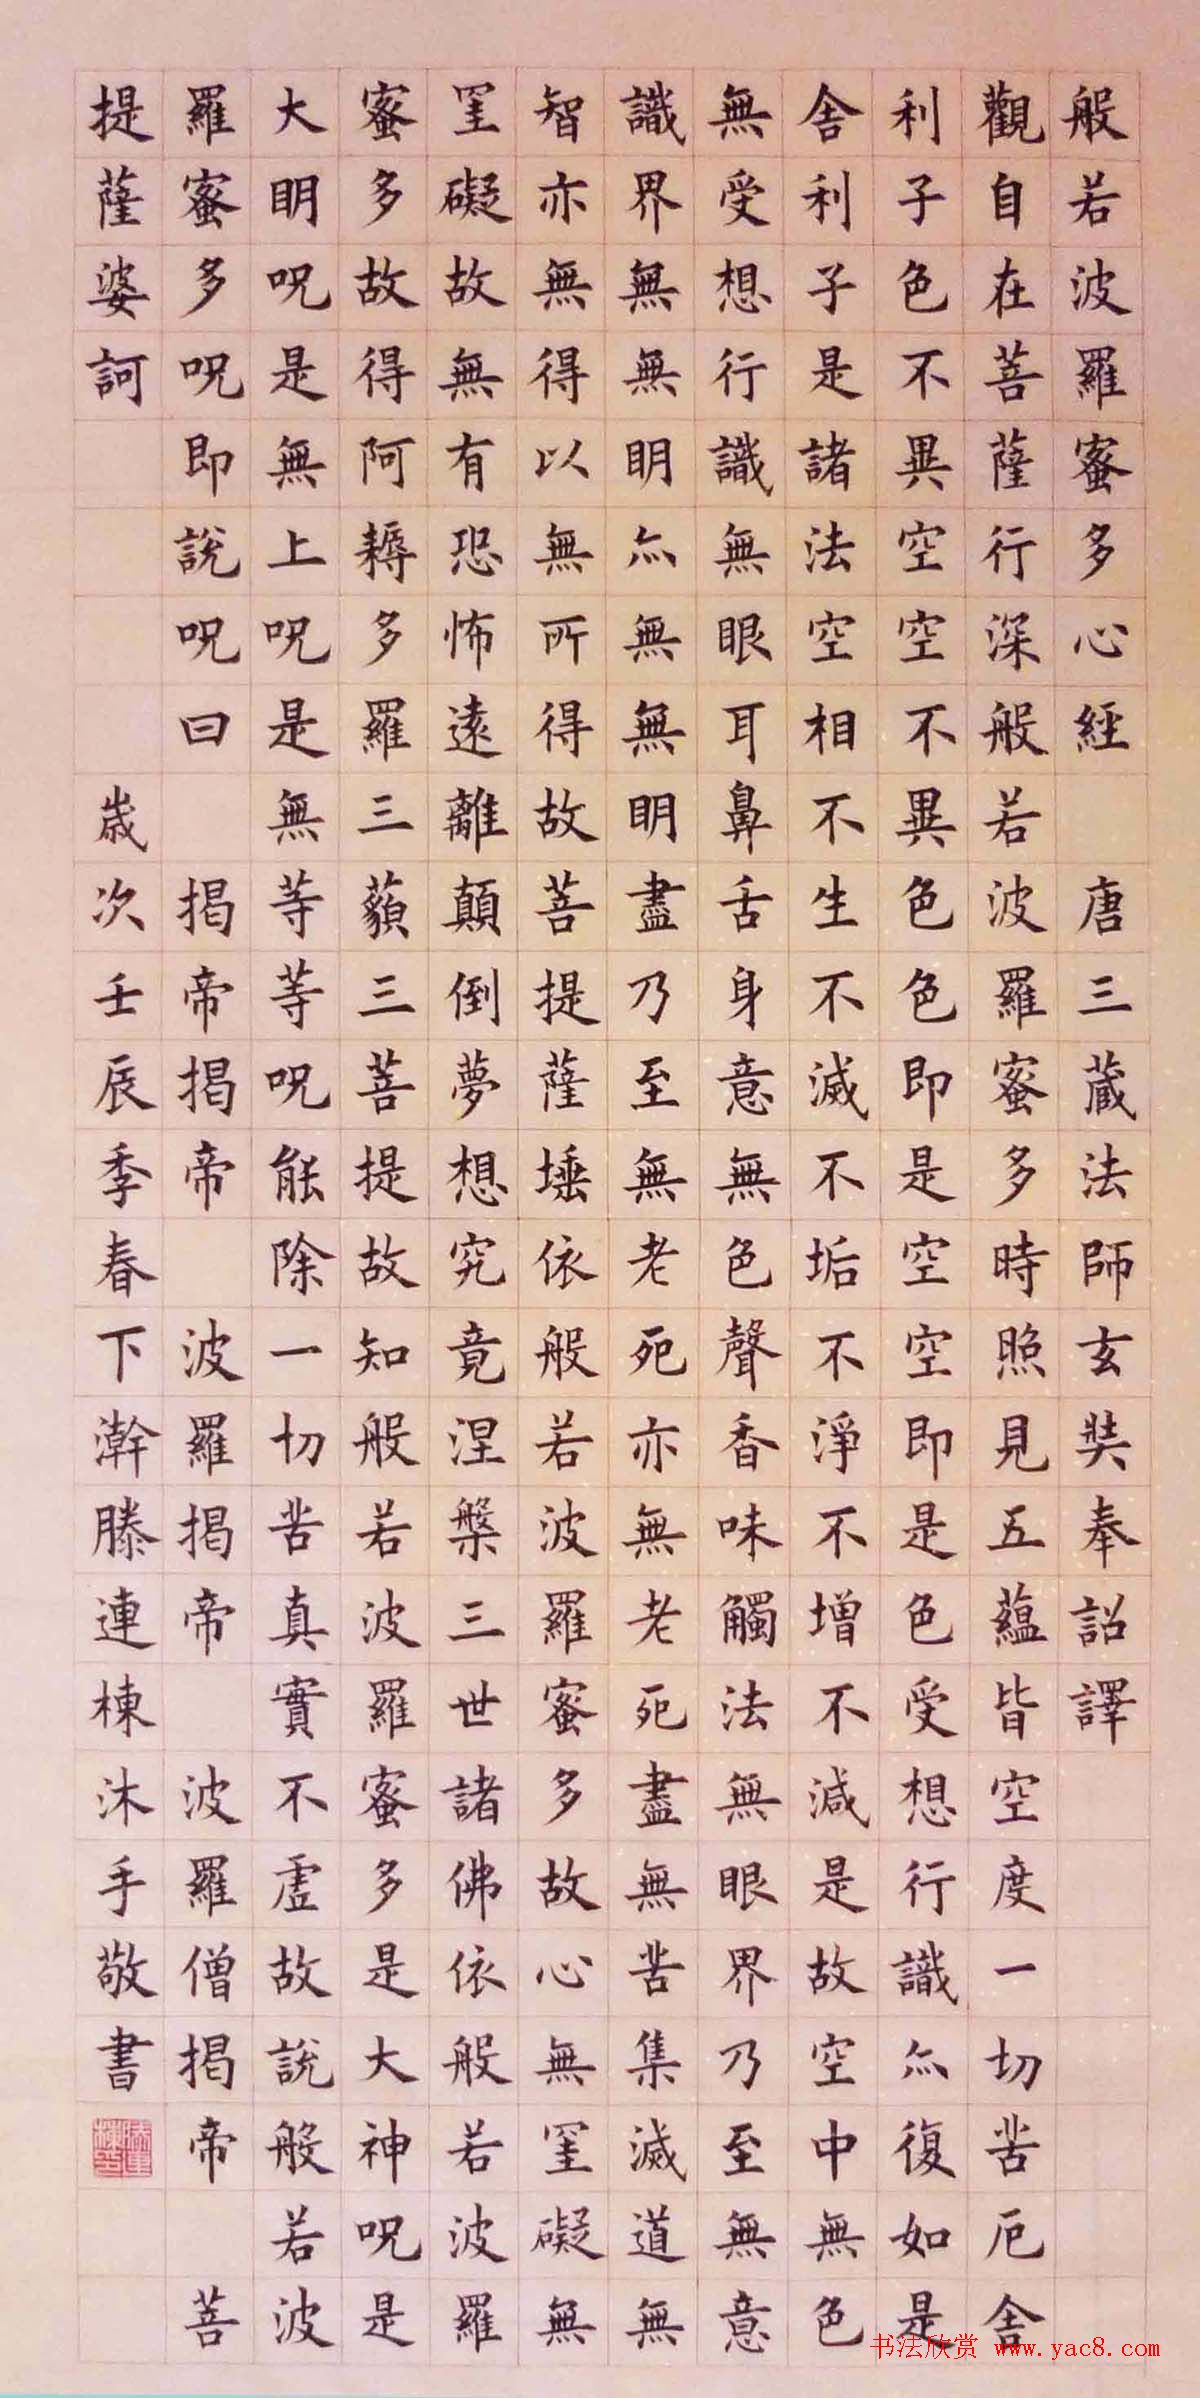 般若波羅蜜多心經 唐三藏法師玄奘奉詔譯
觀自在菩薩行深般若波羅蜜多時照見五蘊皆空度一切苦厄舍
利子色不異空空不異色色即是空空即是色受想行識亦復如是
舍利子是諸法空相不生不滅不垢不淨不增不減是故空中無色
無受想行識無眼耳鼻舌身意無色聲香味觸法無眼界乃至無意
識界無無明亦無無明盡乃至無老死亦無老死盡無苦集滅道無
智亦無得以無所得故菩提薩埵依般若波羅蜜多故心無罣礙無
罣礙故無有恐怖遠離顛倒夢想究竟涅槃三世諸佛依般若波羅
蜜多故得阿耨多羅三藐三菩提故知般若波羅蜜多是大神呪是
大明呪是無上呪是無等等呪能除一切苦真實不虛故說般若波
羅蜜多呪即說呪曰 揭帝揭帝 波羅揭帝 波羅僧揭帝 菩
提薩婆訶 歲次壬辰季春下澣滕連棟沐手敬書
滕連棟印
书法欣赏 www.yac8.com